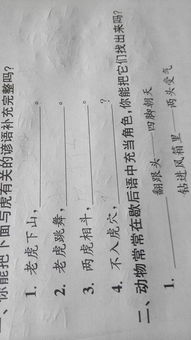 一、你能把下面与虎有关的谚语补充完整吗?
1. 老虎下山,。
2. 老虎跳舞,。
3. 两虎相斗,。
4. 不入虎穴,?
二、动物常常在歇后语中充当角色,你能把它们找出来吗?
翻跟头——四脚朝天
1. 钻进风箱里——两头受气